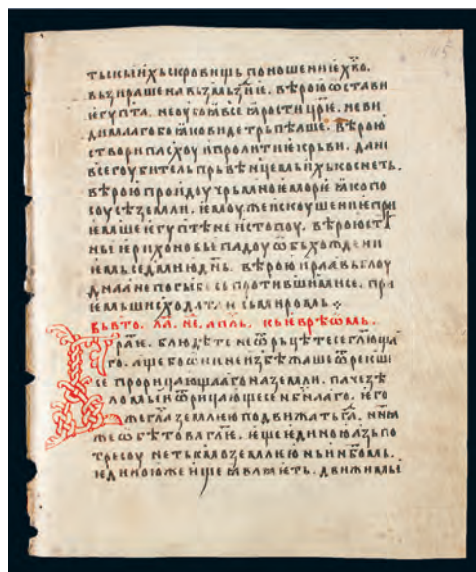 тьскыихьскровищь поношениѥ х҃во.
вьзирашенавьзмьздиѥ. вѣрою ѡстави
ѥгупта. неоубоꙗвсе ꙗрости цр҃ѥ. неви
димаагобоꙗковидетрьпѣаше. вѣрою
створипасхоу ипролитиѥкрьви. дани
всегоубитель прьвѣнцемьихькоснеть.
вѣрою проидоу чрьмноѥмориѥ ꙗкопо
соусѣземли. ѥмоужеискоушениѥпри
ѥмшеѥгуптѣнеистопоу. вѣроюстѣ
ныѥрихоновыѥпадоу ѡбьхождени
ѥмьседмиюднь. вѣрою ираавьблоу
дницанепогыбе сьпротившимисе. при
ѥмьшисходат.и сьмиромь
вьвто. л҃а. не. апль. кьѥврѣѡмь.
Братиѥ. блюдѣте неѡрьцѣтесеглющаа
го. аще бо ѡни неизбѣжаше ѡрекши
се прорицающааго наземли. пачезѣ
ло мы ѡрицающесе снбнаго. ѥго
же гла землю подвижатьгл҃. нинꙗ
жеѡбѣтова глѥ. ѥще ѥдиноюазьпо
тресоу нетькмоземлюнь инбомь.
ѥдиноюже ѥще ꙗвлꙗѥть. движимы